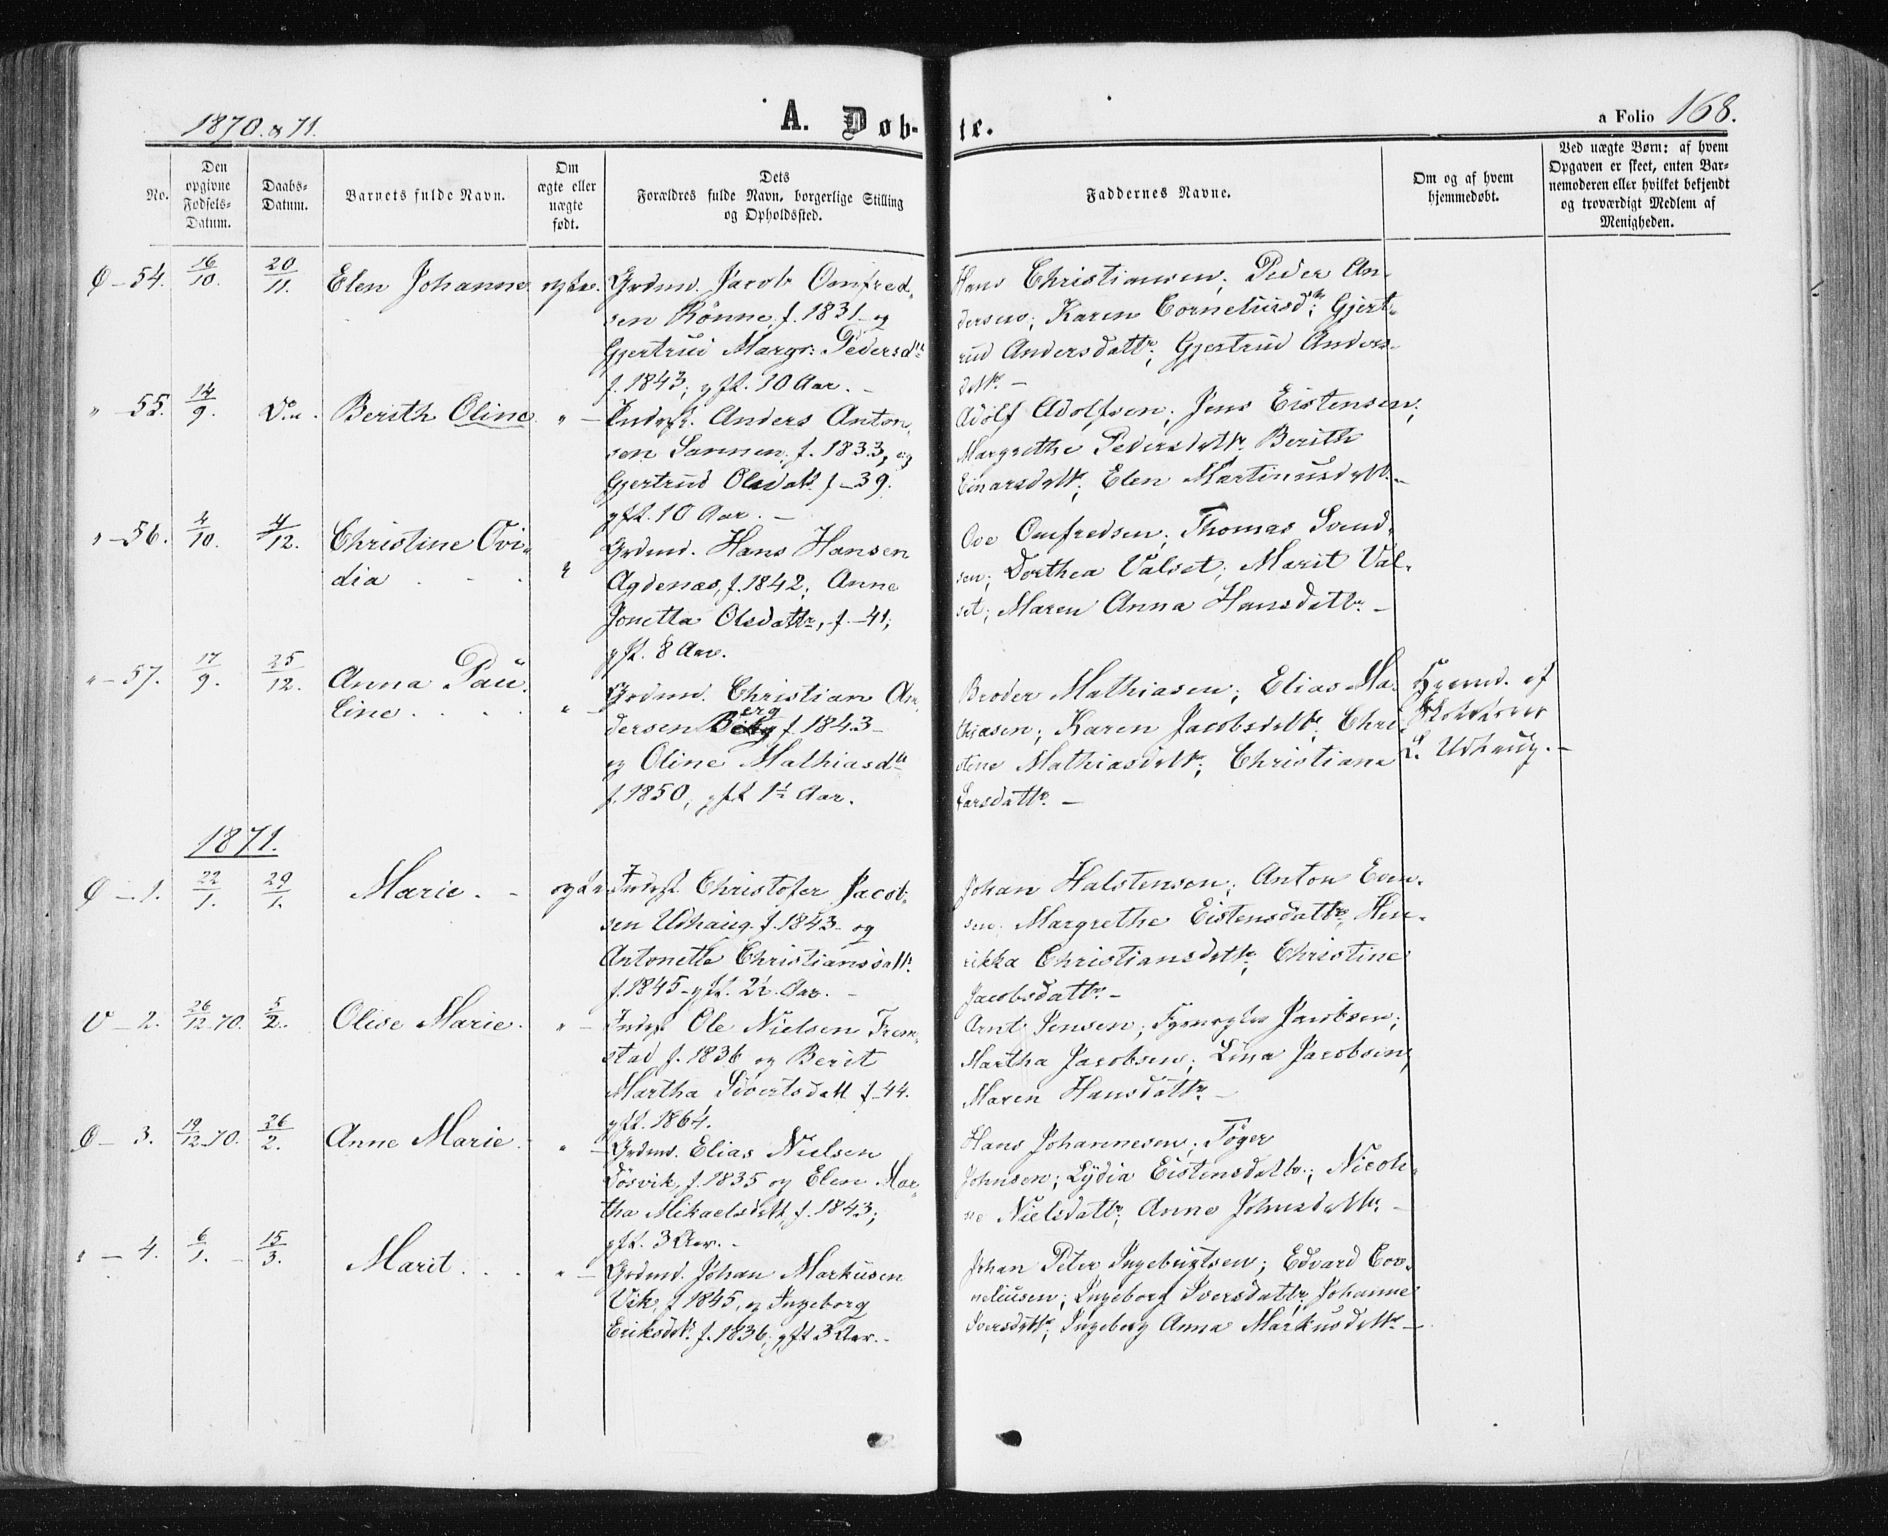 1870 & 71.
A. Døb-
te.
a Folio 168.
No.
Den
opgivne
Fødsels-
Datum.
Daabs-
Datum.
Barnets fulde Navn.
Om
ægte eller
uægte
født.
Dets
Forældres fulde Navn, borgerlige Stilling
og Opholdssted.
Faddernes Navne.
Om og af hvem
hjemmedøbt.
Ved uægte Børn: af hvem
Opgaven er skeet, enten Bar-
nemoderen eller hvilket bekjendt
og troværdigt Medlem af
Menigheden.
Ø - 54. 16/10. 20/11. Elen Johanne ægte. Grdmd. Jacob Omfred-
sen Rönne, f. 1831 og
Gjertrud Margr. Pedersdtr
f. 1843; gft. 10 Aar. -
Hans Christiansen; Peder An-
dersen; Karen Corneliusdtr; Gjert-
rud Andersdattr; Gjertrud Anders-
dattr. -
" - 55. 14/9. Do. Berith Oline " - Inderst. Anders Anton-
sen Sannen, f. 1833, og
Gjertrud Olsdatr f - 39.
gft. 10 Aar. -
Adolf Adolfsen; Jens Eistensen;
Margrethe Pedersdattr. Berith
Einarsdatt; Elen Martinusdatt. -
" - 56. 4/10. 4/12. Christine Ovi-
dia . . . " Grdmd. Hans Hansen
Agdenæs, f. 1842; Anne
Jonetta Olsdattr, f - 41;
gft. 8 Aar.
Ove Omfredsen; Thomas Svend-
sen; Dorthea Valset; Marit Val-
set; Maren Anna Hansdattr. -
" - 57. 17/9. 25/12. Anna Pau-
line . . . . " - Grdmd. Christian An-
dersen Berg f. 1843 -
og Oline Mathiasdtr
f. 1850, gft 1½ Aar.
Broder Mathiasen; Elias Ma-
thiasen; Karen Jacobsdattr. Chri-
stine Mathiasdattr; Christiane
Larsdattr. -
Hjemmd. af
L. Udhaug. -
1871.
Ø - 1. 22/1. 29/1. Marie. - ægte Inderst Christofer Jacob-
sen Udhaug. f. 1843 - og
Antonette Christiansdatt.
f. 1845 - gft. 2½ Aar. -
Johan Halstensen; Anton Even-
sen; Margrethe Eistensdattr; Hen-
rikka Christiansdattr; Christine
Jacobsdattr. -
Ø - 2. 26/12 70. 5/2. Olise Marie. " - Inderst Ole Nielsen Frem-
stad f. 1836 og Berit
Martha Sivertsdatt f - 44.
gft. 1864.
Arnt Jensen; Jacobsen;
Martha Jacobsen; Lina Jacobsen;
Maren Hansdattr. -
Ø - 3. 19/12 70. 26/2. Anne Marie. " - Grdmd. Elias Nielsen
Døsvik, f. 1835 og Elen Mar-
tha Mikaelsdatt, f. 1843;
gft. 3 Aar. -
Hans Johannesen; Töger
Johnsen; Lydia Eistensdattr; Nicoli-
ne Nielsdattr; Anne Johnsdattr. -
" - 4. 6/1. - 15/3. Marit. . . " - Grdmd. Johan Markusen
Vik, f 1845, og Ingeborg
Eriksdtr. f. 1836, gft 3 Aar. -
Johan Peter Ingebrigtsen; Edvard Cor-
neliusen; Ingeborg Iversdattr; Johanne
Iversdattr; Ingeborg Anna Markusdattr. -